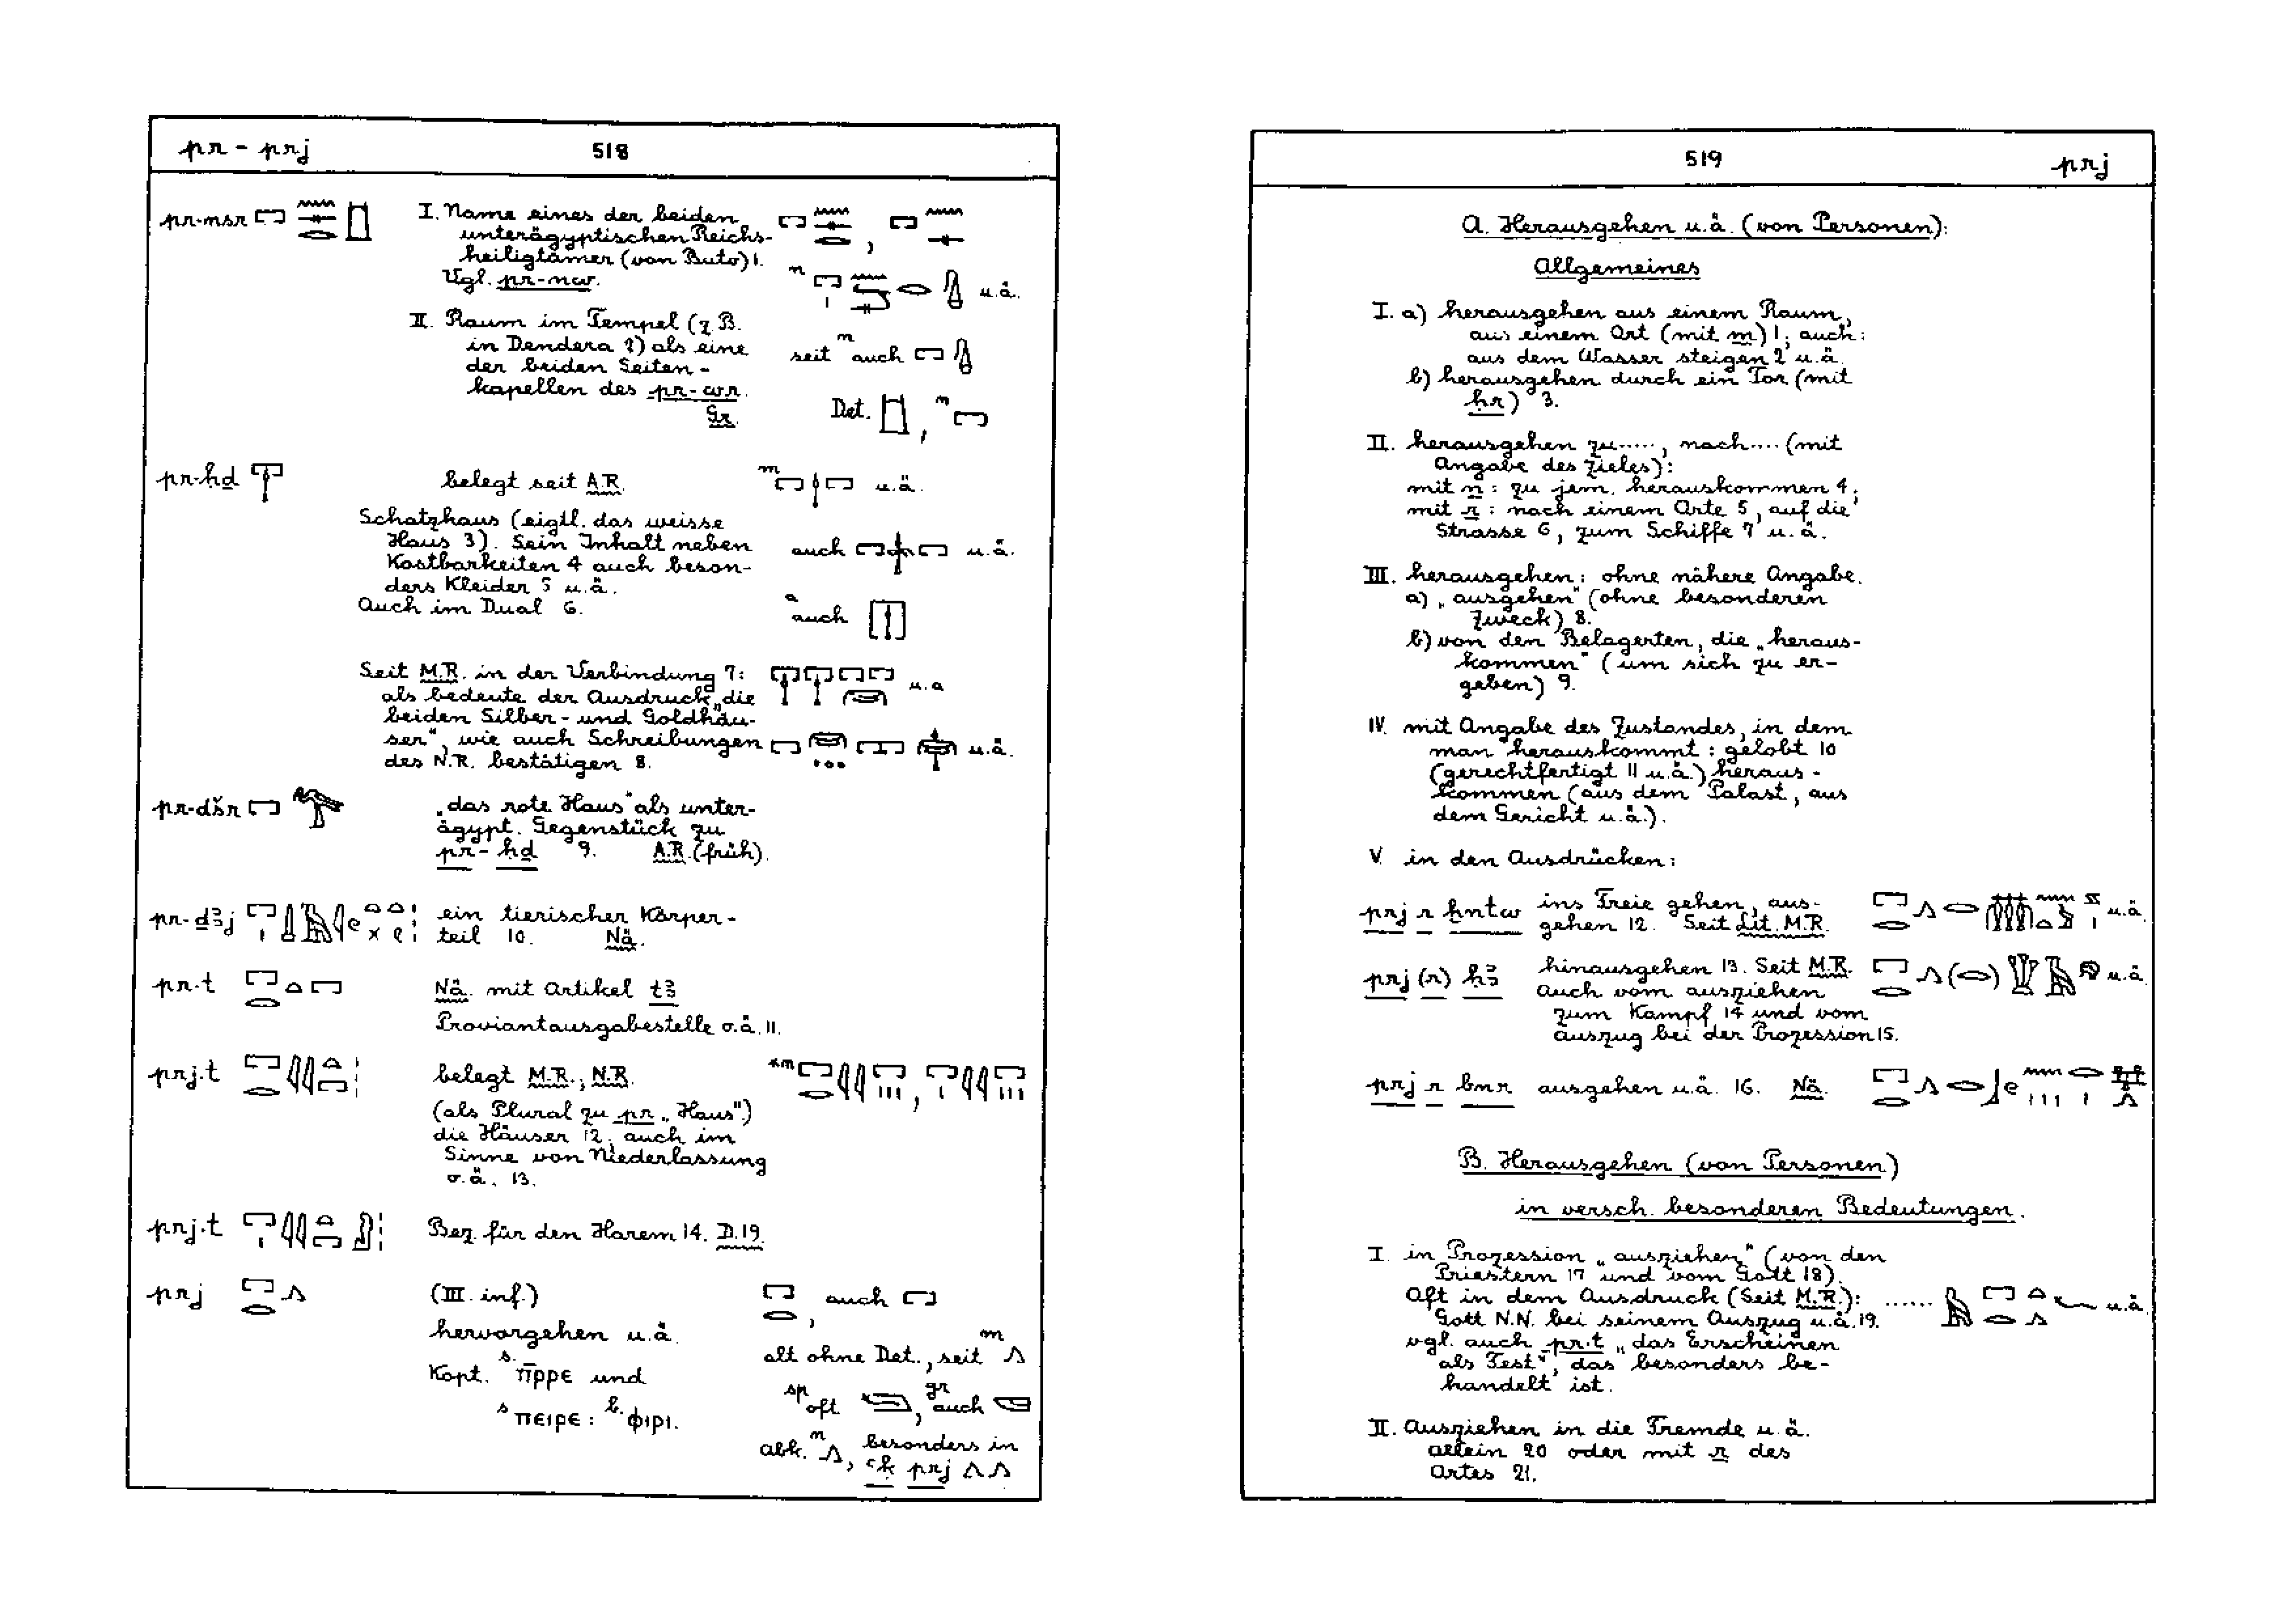 pr - prj 518
pr-nsr I. Name eines der beiden
unterägyptischen Reichs-
heiligtümer (von Buto) 1.
Vgl. pr-nw. u.ä.
II. Raum im Tempel (z.B.
in Dendera 2) als eine
der beiden Seiten-
kapellen des pr-wr.
Gr.
seit m auch
Det. , m
pr-ḥḏ belegt seit A.R. m u.ä.
Schatzhaus (eigtl. das weisse
Haus 3). Sein Inhalt neben
Kostbarkeiten 4 auch beson-
ders Kleider 5 u.ä.
Auch im Dual 6.
auch u.ä.
a auch
Seit M.R. in der Verbindung 7: u.a
als bedeute der Ausdruck „die
beiden Silber- und Goldhäu-
ser", wie auch Schreibungen u.ä.
des N.R. bestätigen 8.
pr-dšr „das rote Haus" als unter-
ägypt. Gegenstück zu
pr-ḥḏ 9. A.R. (früh).
pr-ḏꜣj ein tierischer Körper-
teil 10. Nä.
pr.t Nä. mit Artikel tꜣ
Proviantausgabestelle o.ä. 11.
prj.t belegt M.R., N.R.
(als Plural zu pr „Haus")
die Häuser 12, auch im
Sinne von Niederlassung
o.ä. 13.
prj.t Bez. für den Harem 14. D.19.
prj (III. inf.) , auch
hervorgehen u.ä.
alt ohne Det., seit m
Kopt. s. ⲡ̄ⲣⲣⲉ und
s ⲡⲉⲓⲣⲉ : b. ⲫⲓⲣⲓ.
sp oft , gr auch
abk. m , besonders in
ꜥḳ prj
519 prj
A. Herausgehen u.ä. (von Personen):
Allgemeines
I. a) herausgehen aus einem Raum,
aus einem Ort (mit m) 1; auch:
aus dem Wasser steigen 2 u.ä.
b) herausgehen durch ein Tor (mit
ḥr) 3.
II. herausgehen zu....., nach.... (mit
Angabe des Zieles):
mit n : zu jem. herauskommen 4;
mit r : nach einem Orte 5, auf die
Strasse 6, zum Schiffe 7 u.ä.
III. herausgehen: ohne nähere Angabe.
a) „ausgehen" (ohne besonderen
Zweck) 8.
b) von den Belagerten, die „heraus-
kommen" (um sich zu er-
geben) 9.
IV. mit Angabe des Zustandes, in dem
man herauskommt : gelobt 10
(gerechtfertigt 11 u.ä.) heraus-
kommen (aus dem Palast, aus
dem Gericht u.ä.).
V. in den Ausdrücken:
prj r ḫntw ins Freie gehen, aus-
gehen 12. Seit Lit. M.R. u.ä.
prj (r) ḥꜣ hinausgehen 13. Seit M.R. u.ä.
Auch vom ausziehen
zum Kampf 14 und vom
auszug bei der Prozession 15.
prj r bnr ausgehen u.ä. 16. Nä.
B. Herausgehen (von Personen)
in versch. besonderen Bedeutungen.
I. in Prozession „ausziehen" (von den
Priestern 17 und vom Gott 18).
Oft in dem Ausdruck (Seit M.R.): ...... u.ä.
Gott N.N. bei seinem Auszug u.ä. 19.
vgl. auch pr.t „das Erscheinen
als Fest", das besonders be-
handelt ist.
II. Ausziehen in die Fremde u.ä.
allein 20 oder mit r des
Ortes 21.